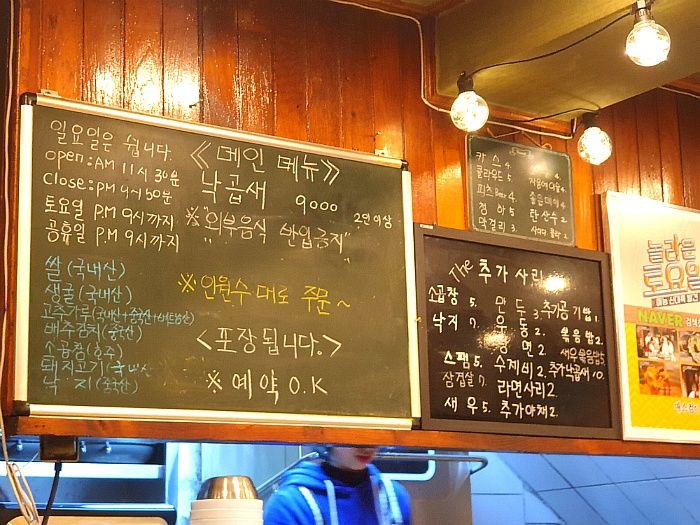 일요일은 쉽니다.
open:AM 11시 30분
close:PM 9시 50분
토요일 PM 9시까지
공휴일 P.M 9시까지
쌀(국내산)
생굴(국내산)
고추가루(국내산+중국산+베트남산)
배추김치(중국산)
소곱창(호주)
돼지고기(국내산)
낙지(중국산)
《메인 메뉴》
낙곱새 9000 2인이상
※"외부음식 반입금지"
※인원수대로 주문~
<포장됩니다.>
※예약 O.K
카스 4.
클라우드 5.
피츠 Beer 4.
청하 5
막걸리 3.
처음처럼 4.
좋은데이 4
탄산수 2.
The 추가 사리
소곱창 5.
낙지 7.
스팸 5.
삼겹살 7.
새우 5.
만두 3.
우동 2.
당면 2.
수제비 2.
라면사리 2.
추가야채 2.
추가공기밥 1.
볶음밥 2.
새우볶음밥 5
추가낙곱새 10.
놀라운
토요일
NAVER 검색